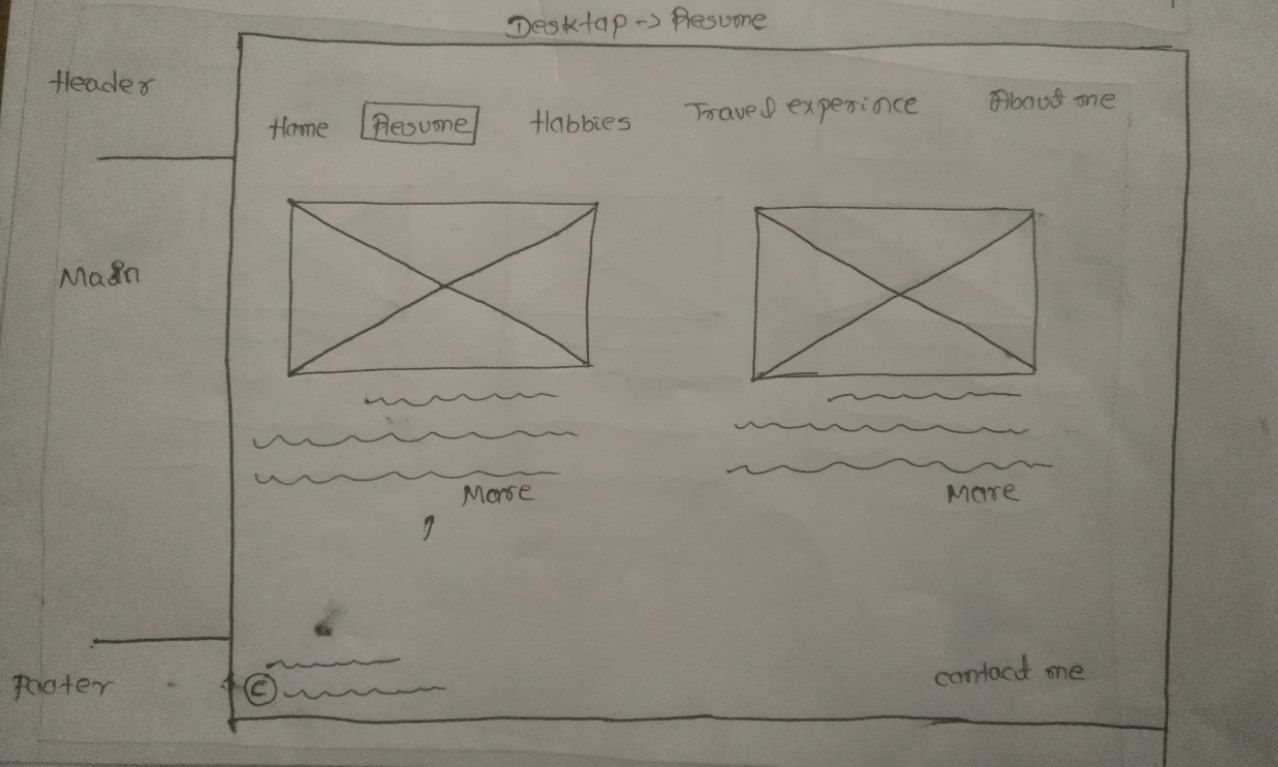 Desktop -> Resume
Header
Home Resume Hobbies Travel experince About me
Main
More More
Footer
© contact me